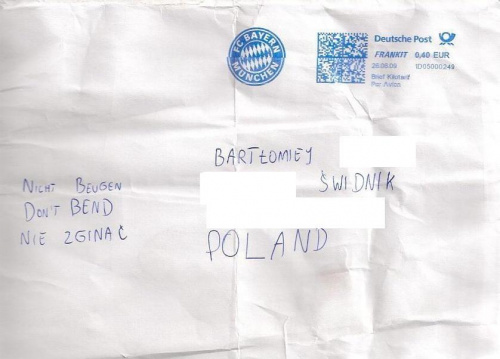 FC BAYERN
MÜNCHEN
Deutsche Post
FRANKIT 0,40 EUR
1D05000249
Par Avion
BARTŁOMIEJ
ŚWIDNIK
POLAND
NICHT BEUGEN
DON'T BEND
NIE ZGINAĆ